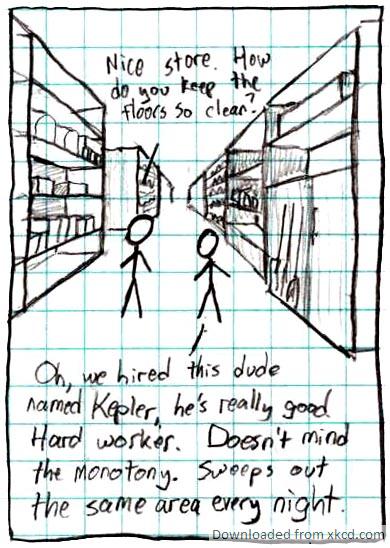 Nice store. How
do you keep the
floors so clean?
Oh, we hired this dude
named Kepler, he's really good.
Hard worker. Doesn't mind
the monotony. Sweeps out
the same area every night.
Downloaded from xkcd.com